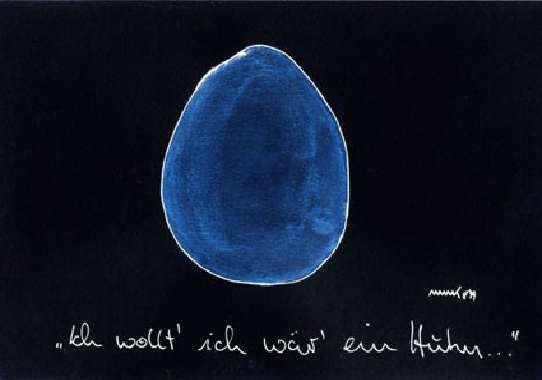 „Ich wollt' ich wär' ein Huhn..."